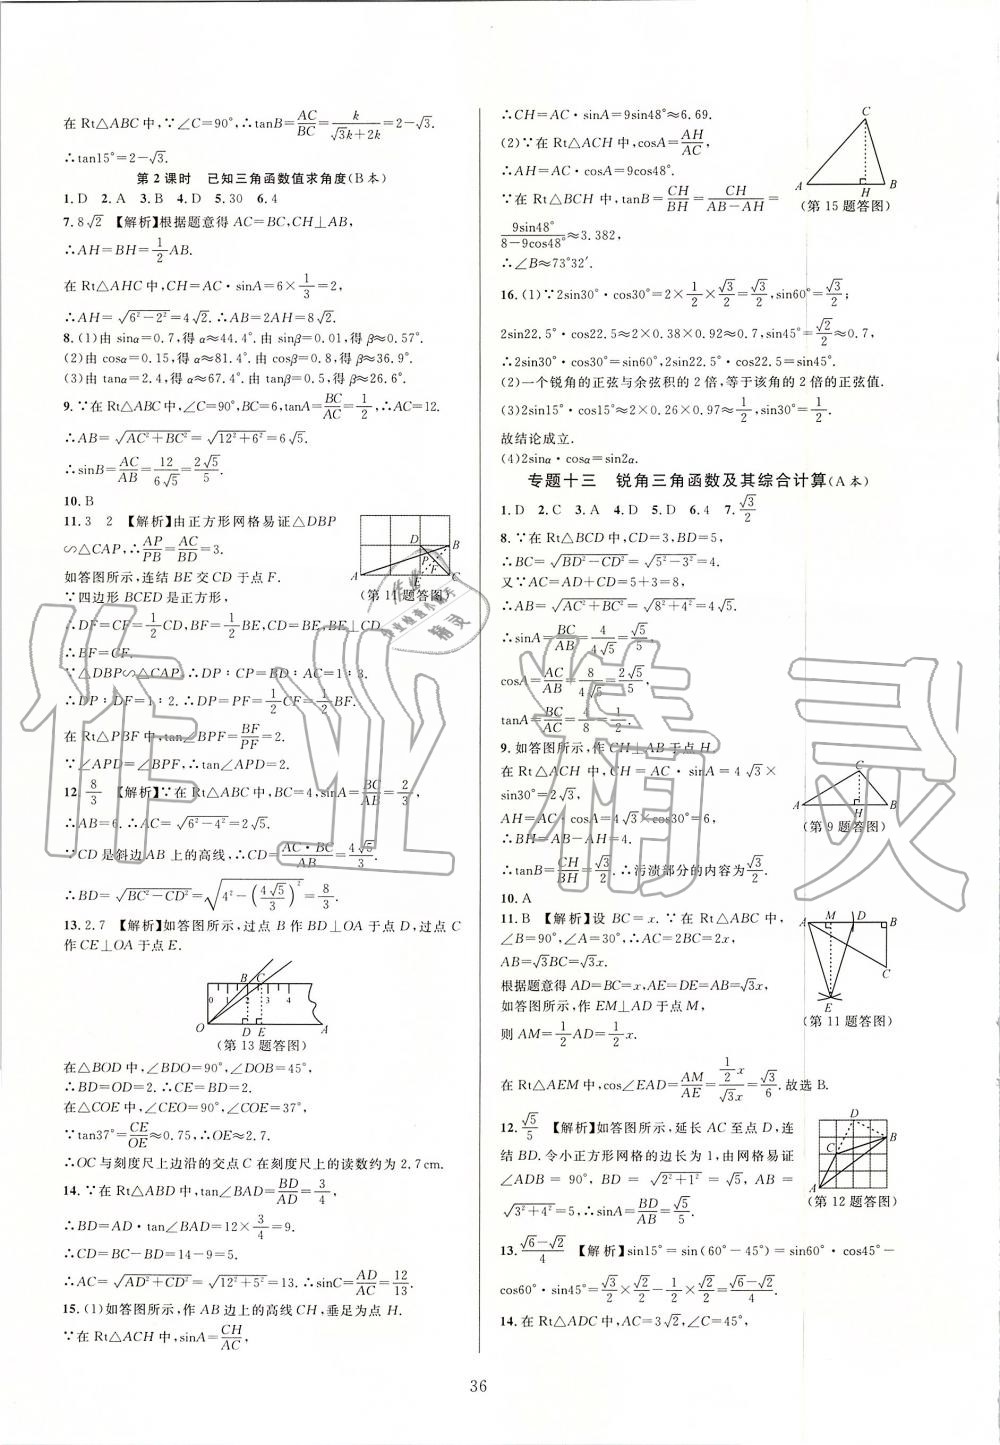 在Rt△ABC中,∵∠C=90°,∴tanB=AC/BC=k/(√3k+2k)=2-√3.
∴tan15°=2-√3.
第2课时 已知三角函数值求角度(B本)
1.D 2.A 3.B 4.D 5.30 6.4
7.8√2 【解析】根据题意得AC=BC,CH⊥AB,
∴AH=BH=1/2AB.
在Rt△AHC中,CH=AC·sinA=6×1/3=2,
∴AH=√(6²-2²)=4√2.∴AB=2AH=8√2.
8.(1)由sinα=0.7,得α≈44.4°.由sinβ=0.01,得β≈0.57°.
(2)由cosα=0.15,得α≈81.4°.由cosβ=0.8,得β≈36.9°.
(3)由tanα=2.4,得α≈67.4°.由tanβ=0.5,得β≈26.6°.
9.∵在Rt△ABC中,∠C=90°,BC=6,tanA=BC/AC=1/2,∴AC=12.
∴AB=√(AC²+BC²)=√(12²+6²)=6√5.
∴sinB=AC/AB=12/(6√5)=2√5/5.
10.B
11.3 2 【解析】由正方形网格易证△DBP
∽△CAP,∴AP/PB=AC/BD=3.
如答图所示,连结BE交CD于点F.
∵四边形BCED是正方形,
∴DF=CF=1/2CD,BF=1/2BE,CD=BE,BE⊥CD.
∴BF=CF.
∵△DBP∽△CAP,∴DP∶CP=BD∶AC=1∶3.
∴DP∶DF=1∶2.∴DP=PF=1/2CF=1/2BF.
在Rt△PBF中,tan∠BPF=BF/PF=2.
∵∠APD=∠BPF,∴tan∠APD=2.
A B C D E F P
(第11题答图)
12.8/3 【解析】∵在Rt△ABC中,BC=4,sinA=BC/AB=2/3,
∴AB=6.∴AC=√(6²-4²)=2√5.
∵CD是斜边AB上的高线,∴CD=AC·BC/AB=4√5/3.
∴BD=√(BC²-CD²)=√(4²-(4√5/3)²)=8/3.
13.2.7 【解析】如答图所示,过点B作BD⊥OA于点D,过点C
作CE⊥OA于点E.
B C
0 1 2 3 4
O D E A
(第13题答图)
在△BOD中,∠BDO=90°,∠DOB=45°,
∴BD=OD=2.∴CE=BD=2.
在△COE中,∠CEO=90°,∠COE=37°,
∵tan37°=CE/OE≈0.75,∴OE≈2.7.
∴OC与刻度尺上边沿的交点C在刻度尺上的读数约为2.7cm.
14.∵在Rt△ABD中,tan∠BAD=BD/AD=3/4,
∴BD=AD·tan∠BAD=12×3/4=9.
∴CD=BC-BD=14-9=5.
∴AC=√(AD²+CD²)=√(12²+5²)=13.∴sinC=AD/AC=12/13.
15.(1)如答图所示,作AB边上的高线CH,垂足为点H.
∵在Rt△ACH中,sinA=CH/AC,
∴CH=AC·sinA=9sin48°≈6.69.
(2)∵在Rt△ACH中,cosA=AH/AC,
∴AH=AC·cosA=9cos48°.
∵在Rt△BCH中,tanB=CH/BH=CH/(AB-AH)=
9sin48°/(8-9cos48°)≈3.382,
∴∠B≈73°32′.
C
A H B
(第15题答图)
16.(1)∵2sin30°·cos30°=2×1/2×√3/2=√3/2,sin60°=√3/2;
2sin22.5°·cos22.5≈2×0.38×0.92≈0.7,sin45°=√2/2≈0.7,
∴2sin30°·cos30°=sin60°,2sin22.5°·cos22.5=sin45°.
(2)一个锐角的正弦与余弦积的2倍,等于该角的2倍的正弦值.
(3)2sin15°·cos15°≈2×0.26×0.97≈1/2,sin30°=1/2.
故结论成立.
(4)2sinα·cosα=sin2α.
专题十三 锐角三角函数及其综合计算(A本)
1.D 2.C 3.A 4.D 5.D 6.4 7.√3/2
8.∵在Rt△BCD中,CD=3,BD=5,
∴BC=√(BD²-CD²)=√(5²-3²)=4.
又∵AC=AD+CD=5+3=8,
∴AB=√(AC²+BC²)=√(8²+4²)=4√5.
∴sinA=BC/AB=4/(4√5)=√5/5,
cosA=AC/AB=8/(4√5)=2√5/5,
tanA=BC/AC=4/8=1/2.
9.如答图所示,作CH⊥AB于点H.
在Rt△ACH中,CH=AC·sinA=4√3×
sin30°=2√3,
AH=AC·cosA=4√3×cos30°=6,
∴BH=AB-AH=4.
∴tanB=CH/BH=√3/2.∴污渍部分的内容为√3/2.
C
A H B
(第9题答图)
10.A
11.B 【解析】设BC=x.∵在Rt△ABC中,
∠B=90°,∠A=30°,∴AC=2BC=2x,
AB=√3BC=√3x.
根据题意得AD=BC=x,AE=DE=AB=√3x,
如答图所示,作EM⊥AD于点M,
则AM=1/2AD=1/2x.
在Rt△AEM中,cos∠EAD=AM/AE=(1/2x)/(√3x)=√3/6.故选B.
A M D B
C
E
(第11题答图)
12.√5/5 【解析】如答图所示,延长AC至点D,连
结BD.令小正方形网格的边长为1,由网格易证
∠ADB=90°,BD=√(2²+1²)=√5,AB=
√(3²+4²)=5,∴sinA=BD/AB=√5/5.
D
B
C
A
(第12题答图)
13.(√6-√2)/4 【解析】sin15°=sin(60°-45°)=sin60°·cos45°-
cos60°·sin45°=√3/2×√2/2-1/2×√2/2=(√6-√2)/4.
14.在Rt△ADC中,AC=3√2,∠C=45°,
36
作业精灵